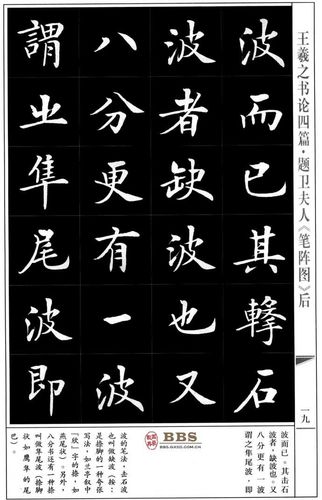 王羲之书论四篇·题卫夫人《笔阵图》后
一九
波而已其擊石
波者缺波也又
八分更有一波
謂㞢隼尾波即
波而已。其击石
者，缺波也。又
八分更有一波
谓之隼尾波，即
波的笔法，去石波
也叫做缺波（按：
是捺脚的一种夸张
写法，如兰亭叙中
「欣」字的捺，如
燕尾状）。另外，
八分书还有一种捺
叫做隼尾波（捺
状如鹰隼的尾
巴）。
BBS